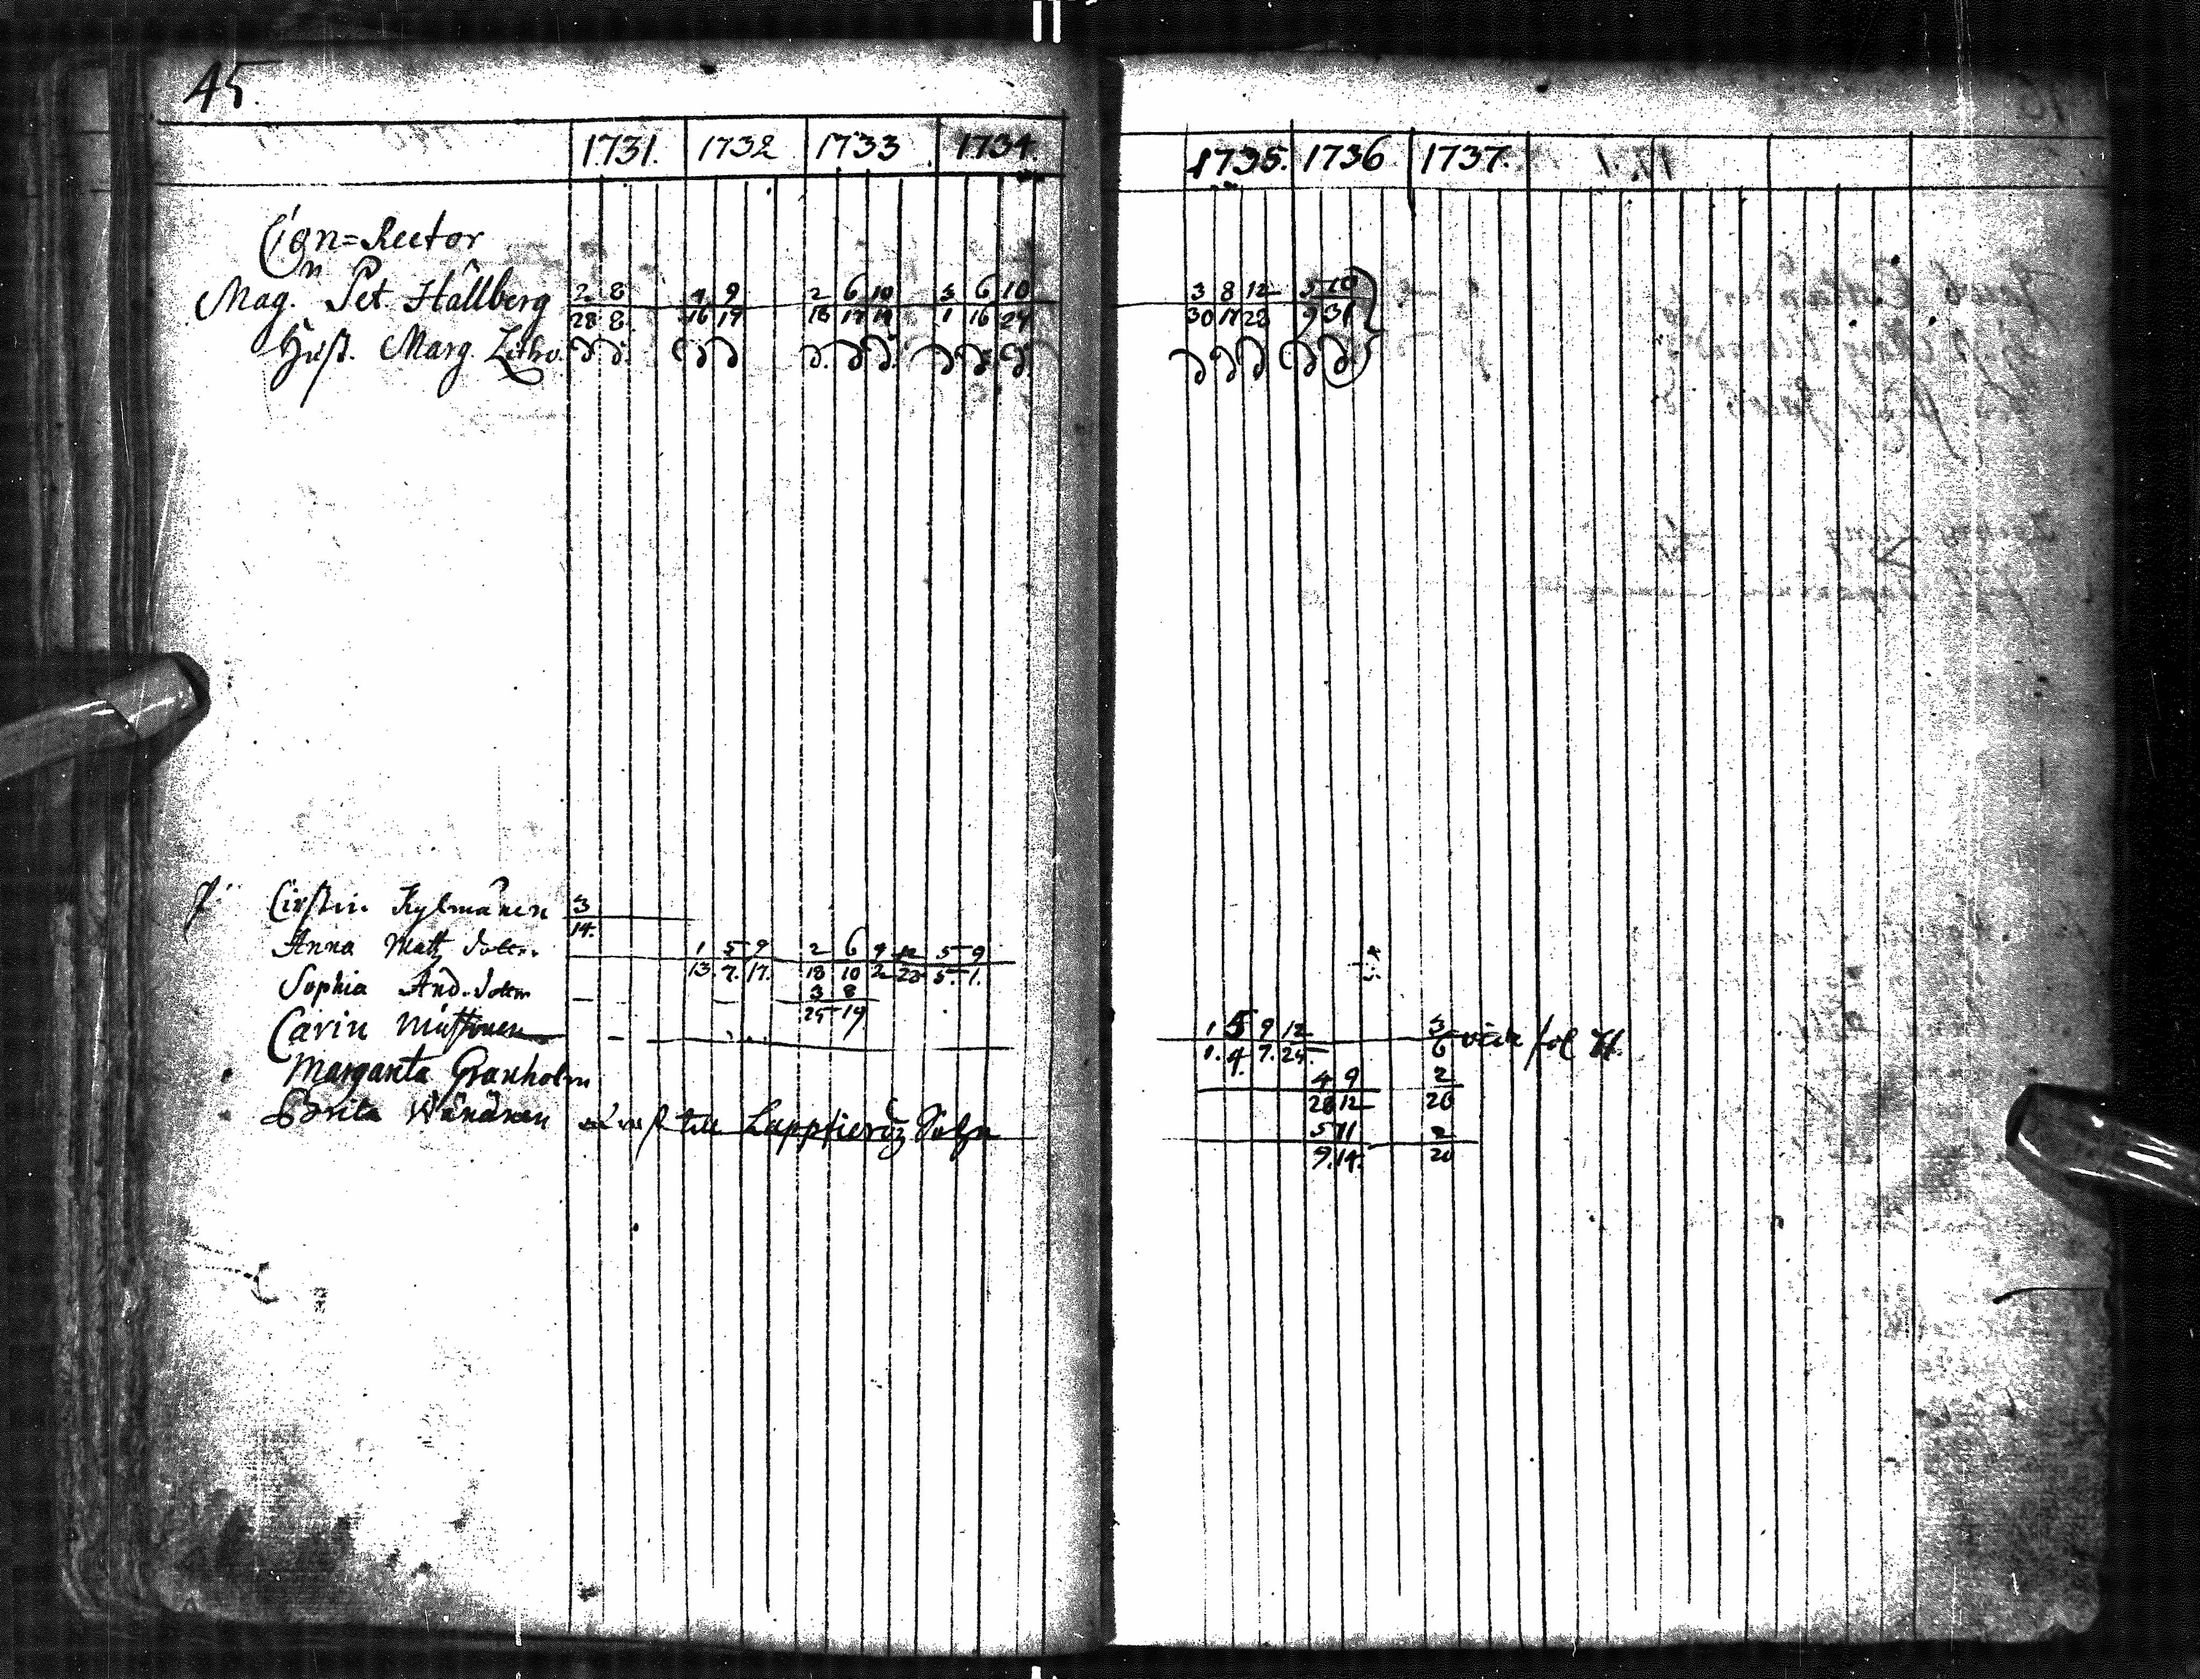 45.
1731. 1732 1733 1734. 1735. 1736 1737.
Con=Rector
Mag. Pet. Hållberg 2 8 4 9 2 6 10 3 6 10 3 8 12 5 10
28 8 16 19 18 17 14 1 16 24 30 17 28 9 31
Hust. Marg.
P. Cirstin Kylmänen 3
14.
Anna Matz dotter. 1 5 9 2 6 9 12 5 9
13 7. 17. 18 10 2 23 5. 1.
Sophia And. dotter 3 8
25 19
Carin 1 5 9 12 3 vide fol
1. 4. 7. 24. 6
Margareta Granholm 4 9 2
20 12 20
Brita Wänänen till Lappfierdz Sokn 5 11 2
9. 14. 20